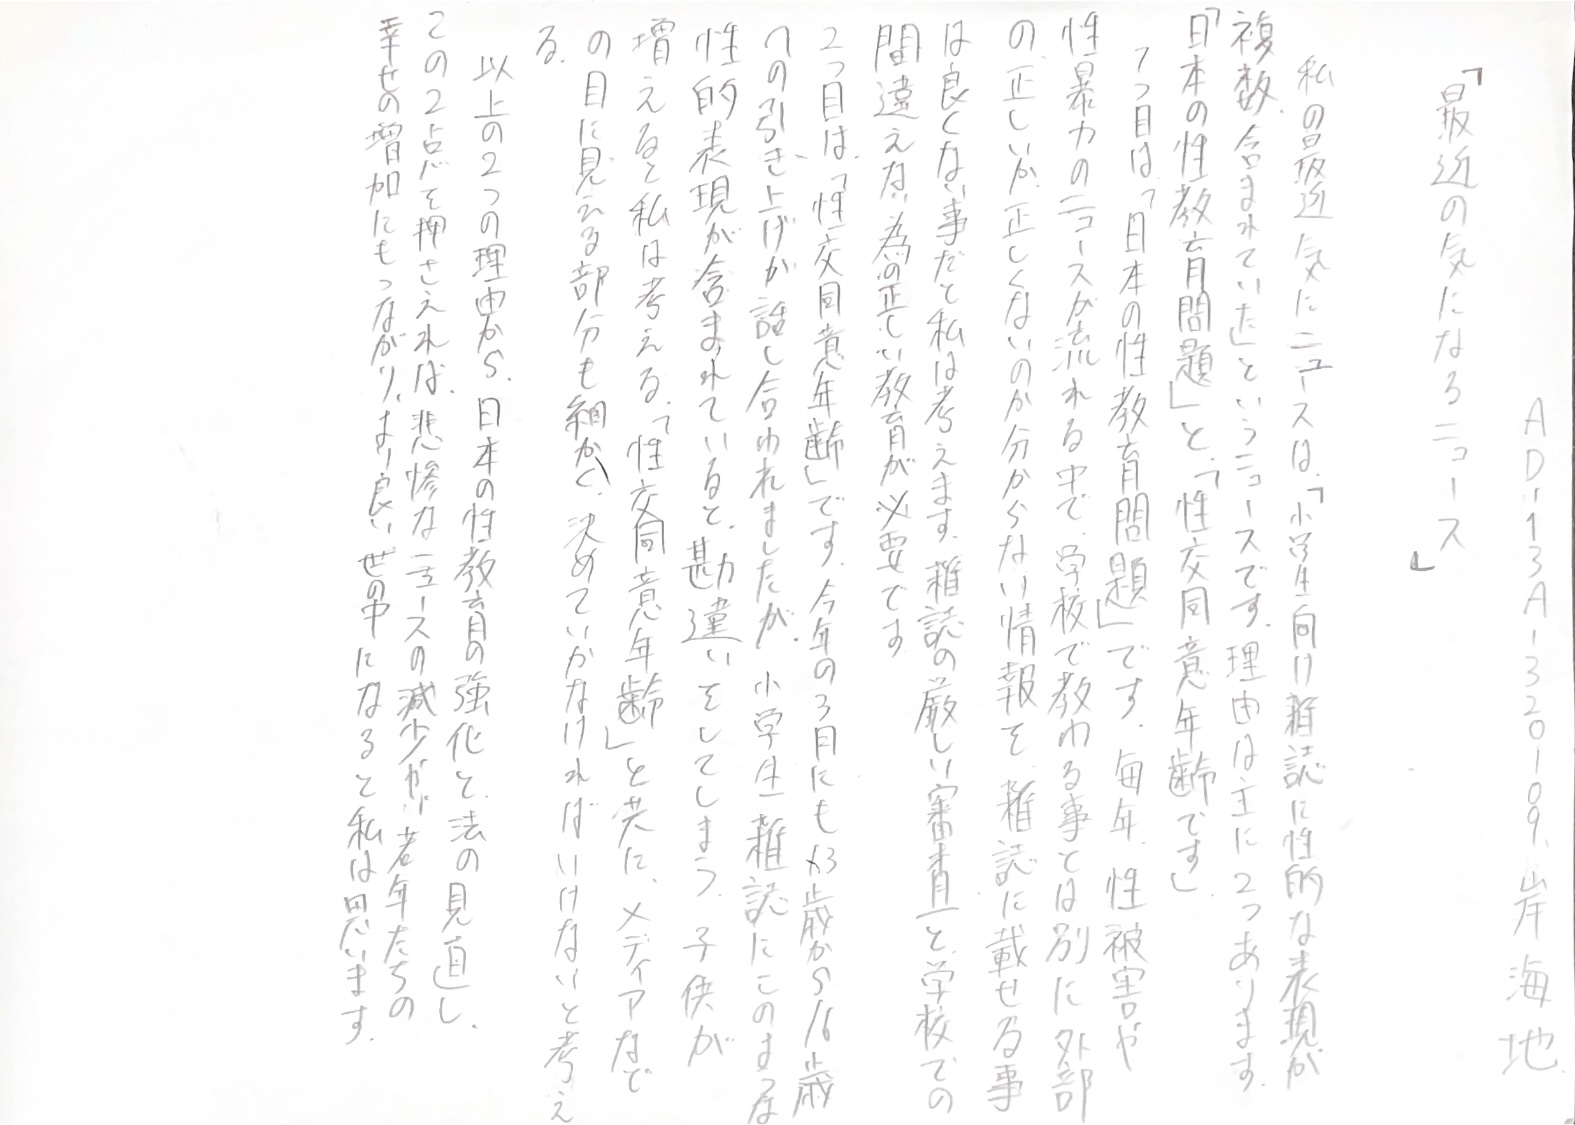 AD-13A-320109、岸 海地
「最近の気になるニュース」
私の最近気にニュースは、「小学生向け雑誌に性的な表現が
複数、含まれていた」というニュースです。理由は主に2つあります。
「日本の性教育問題」と、「性交同意年齢です」
1つ目は、「日本の性教育問題」です。毎年、性被害や
性暴力のニュースが流れる中で、学校で教わる事とは別に外部
の正しいか、正しくないのか分からない情報を、雑誌に載せる事
は良くない事だと私は考えます。雑誌の厳しい審査と、学校での
間違えない為の正しい教育が必要です。
2つ目は、「性交同意年齢」です。今年の3月にも13歳から16歳
への引き上げが話し合われましたが、小学生雑誌にこのような
性的表現が含まれていると、勘違いをしてしまう、子供が
増えると私は考える。「性交同意年齢」と共に、メディアなど
の目に見える部分も細かく、決めていかなければいけないと考え
る。
以上の2つの理由から、日本の性教育の強化と、法の見直し、
この2点を押さえれば、悲惨なニュースの減少が、若年たちの
幸せの増加にもつながり、より良い世の中になると私は思います。